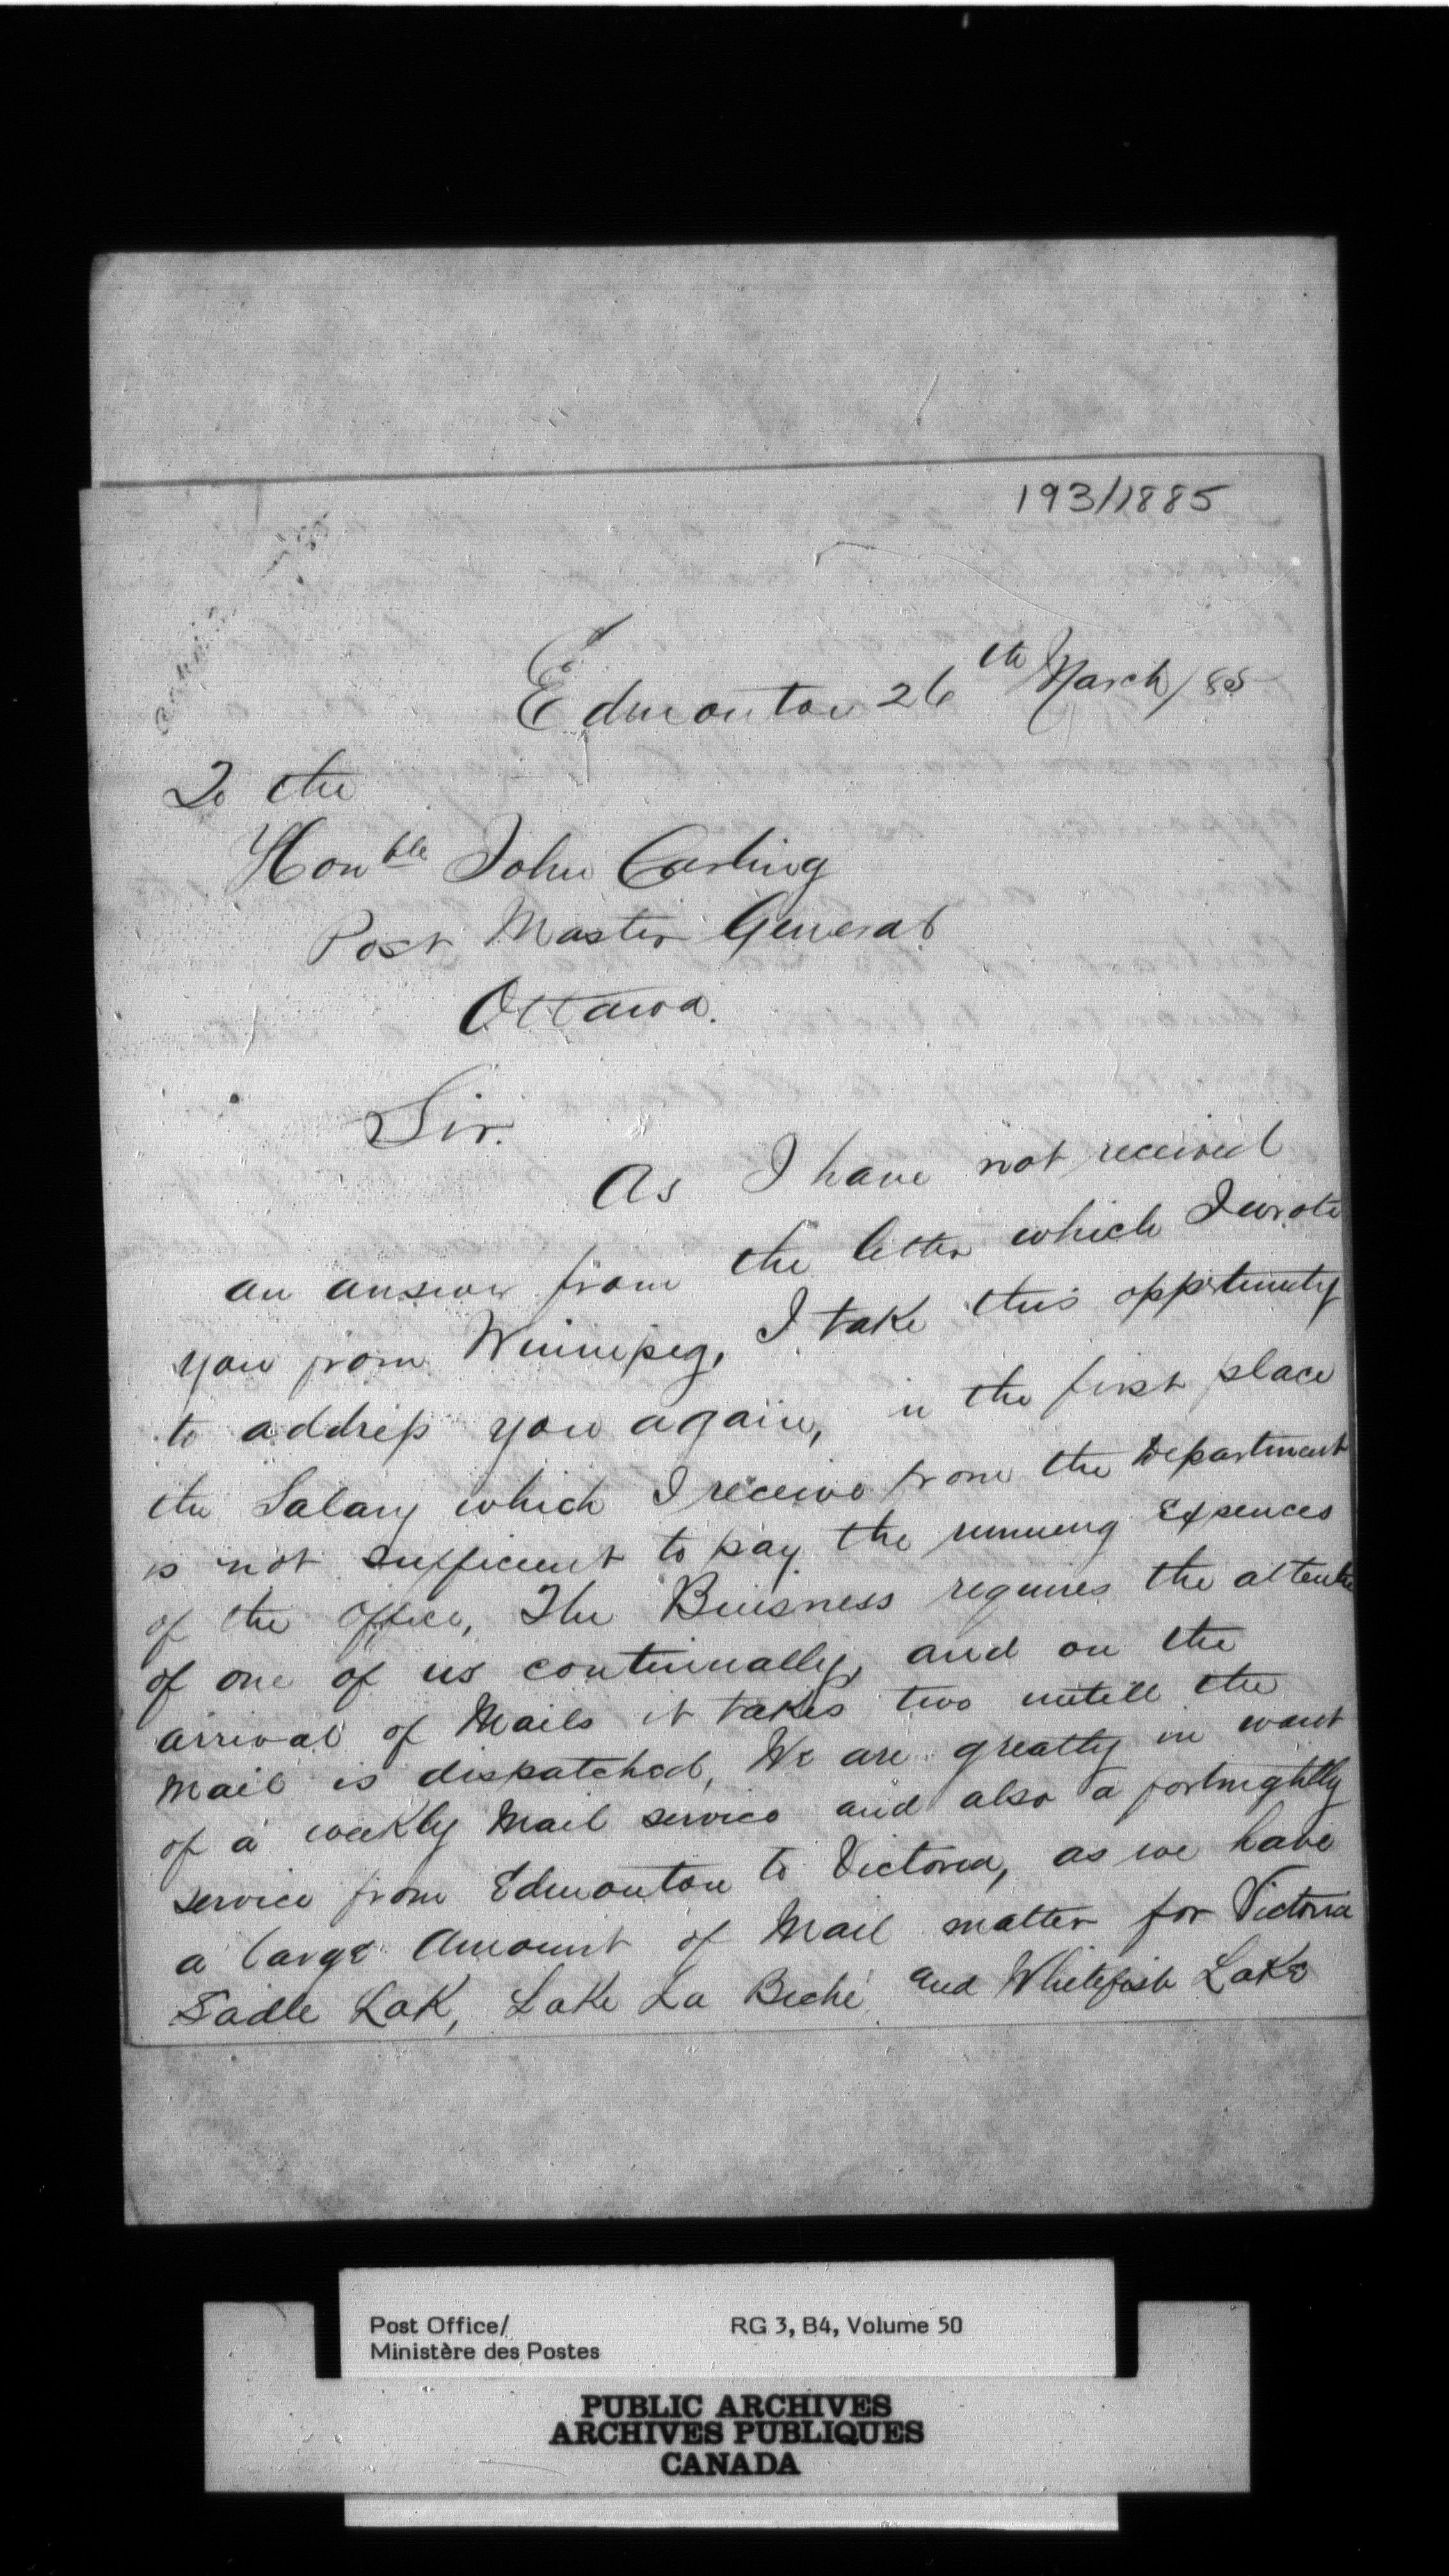 193/1885
Edmonton 26th March/85
To the
Honble John Carling
Post Master General
Ottawa.
Sir.
As I have not received
an answer from the letter which I wrote
you from Winnipeg, I take this opportunity
to address you again, in the first place
the Salary which I receive from the Department
is not sufficient to pay the running Expences
of the Office, The Buisness requires the attention
of one of us continually, and on the
arrival of Mails it takes two untill the
Mail is dispatched, We are greatly in want
of a weekly Mail service and also a fortnightlly
service from Edmonton to Victoria, as we have
a large Amount of Mail matter for Victoria
Sadle Lak, Lake La Biche and Whitefish Lake
Post Office/
Ministère des Postes
RG 3, B4, Volume 50
PUBLIC ARCHIVES
ARCHIVES PUBLIQUES
CANADA